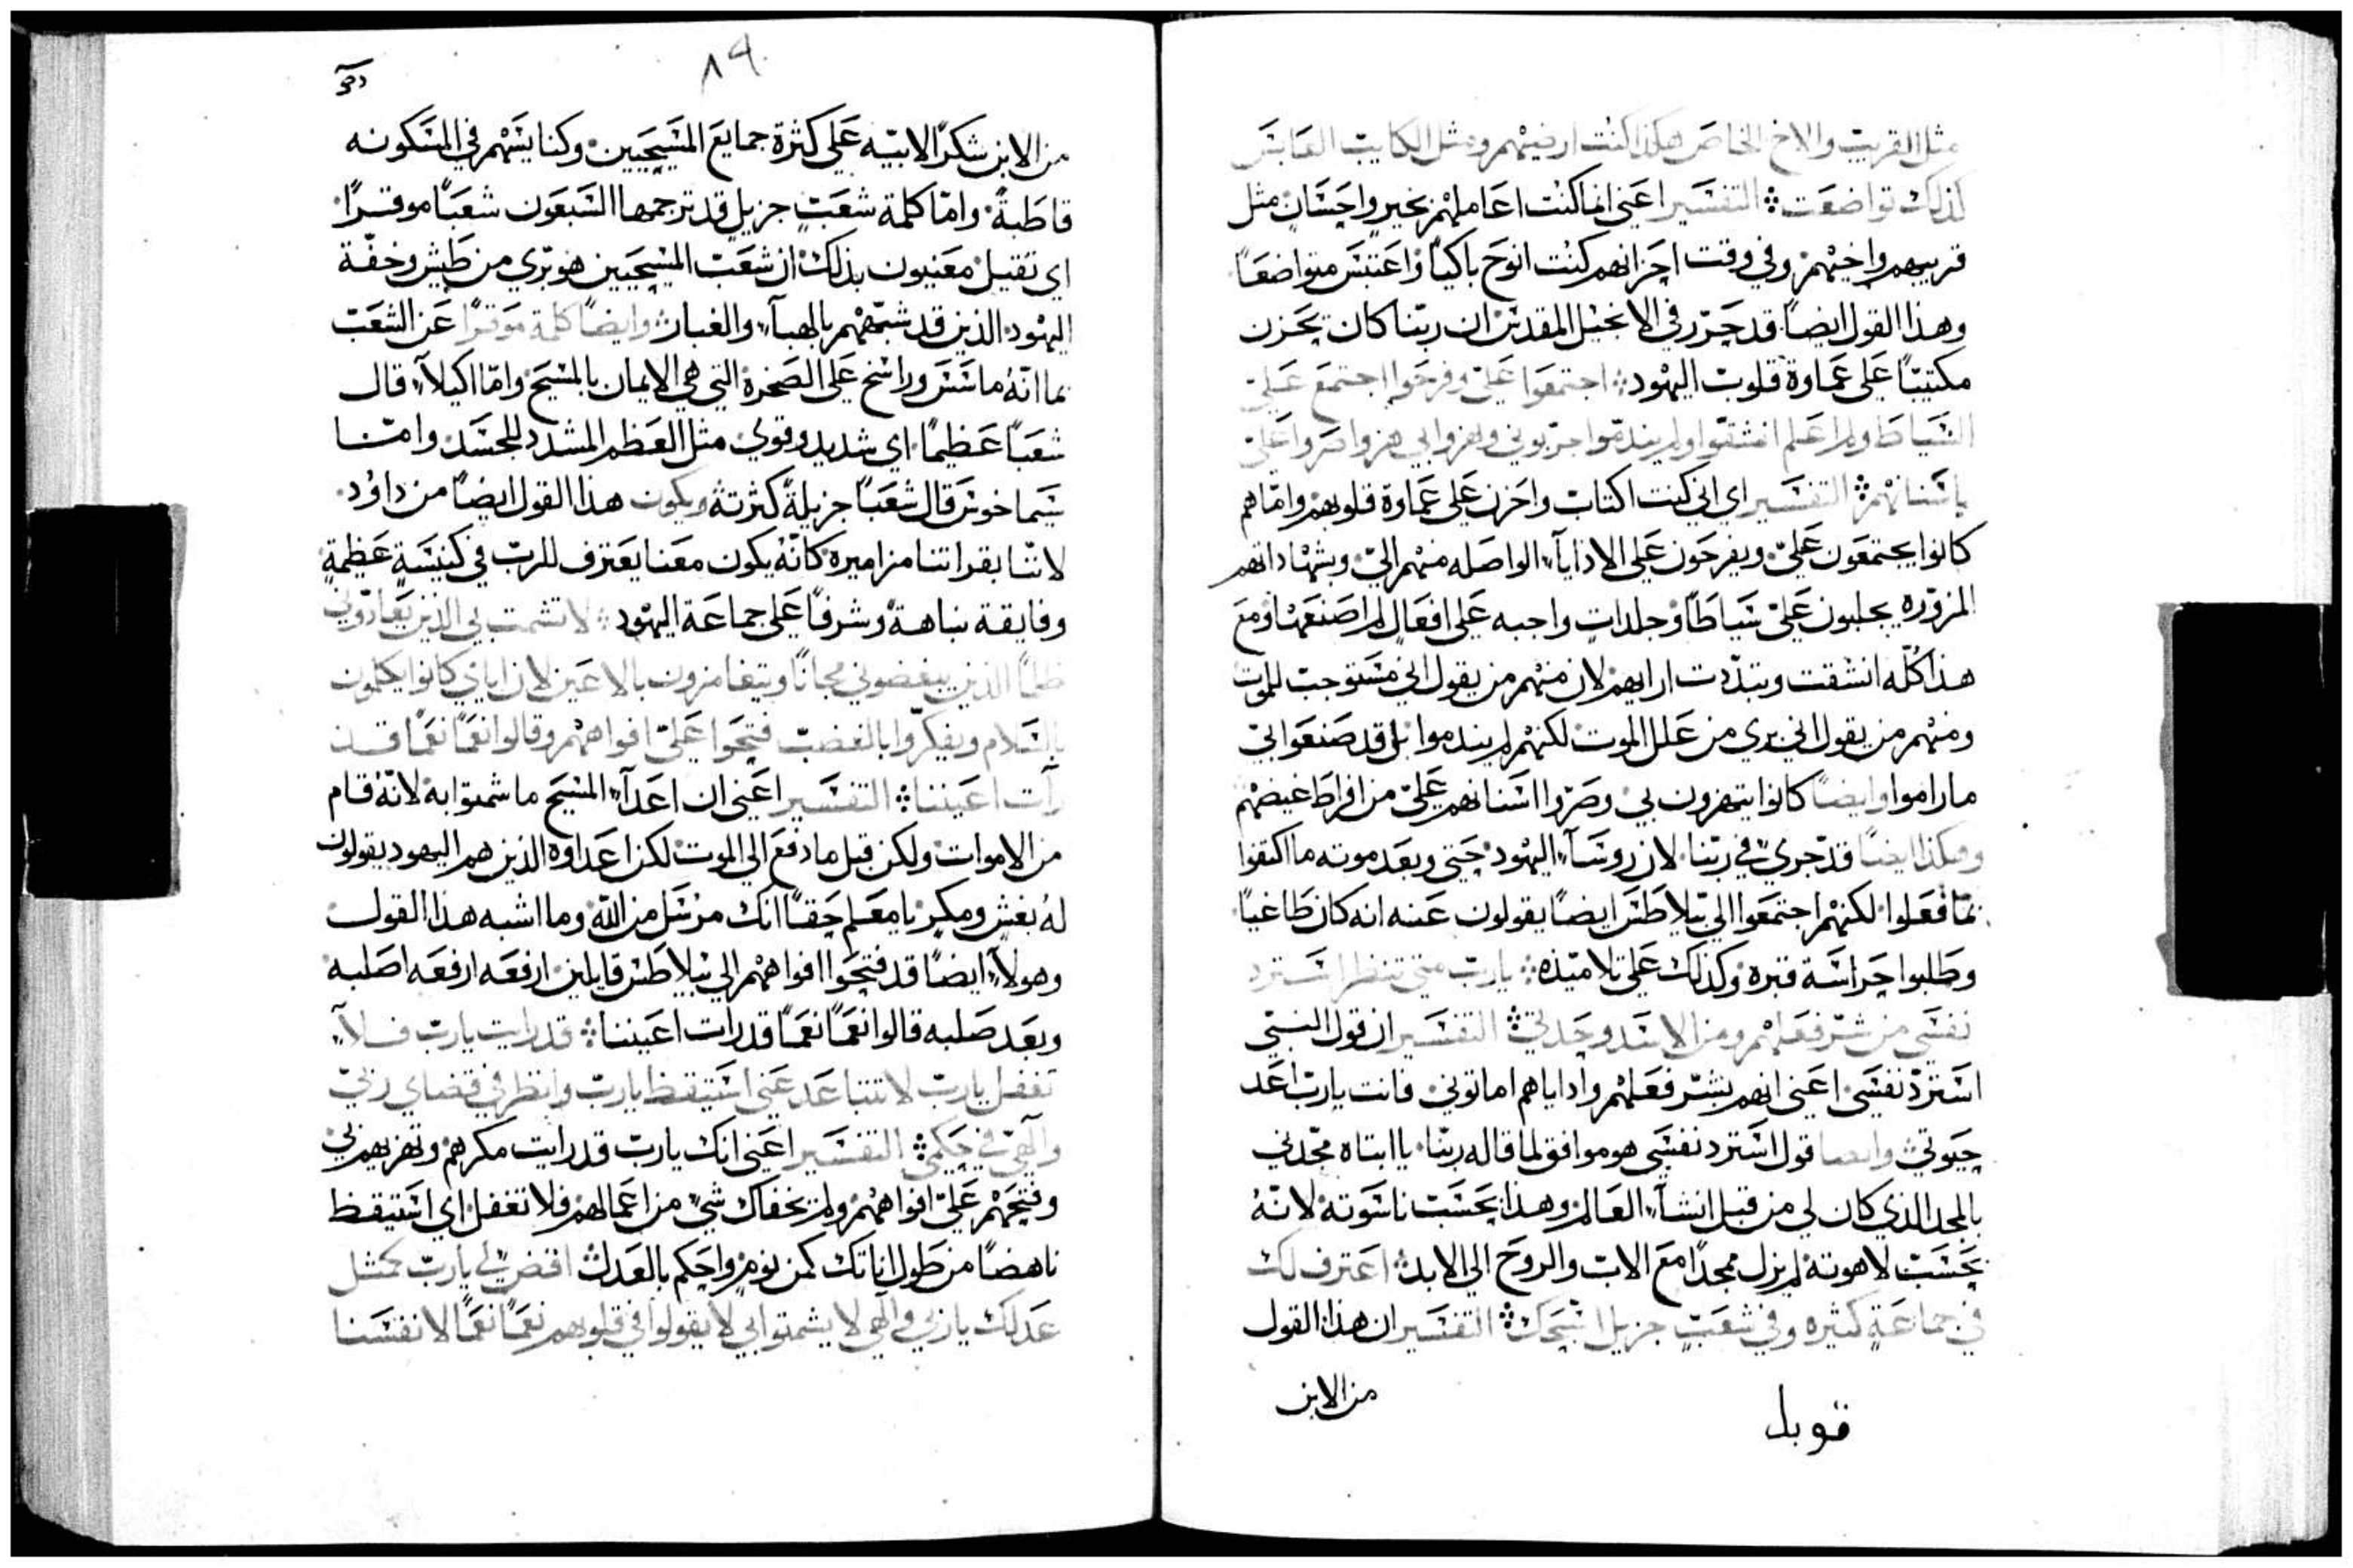 مثل القريب والاخ الخاص هكذا كنت ارضيهم ومثل الكايب العابس
كذلك تواضعت ⁘ التفسير اعني انما كنت اعاملهم بخير واحسان مثل
قريبهم واخيهم وفي وقت احزانهم كنت انوح باكيًا واعتبس متواضعًا
وهذا القول ايضًا قد حرّر في الانجيل المقدس ان ربّنا كان يحزن
مكتيبًا على عماوة قلوب اليهود ⁘ اجتمعوا عليّ وفرحوا اجتمع عليّ
السياط ولم اعلم انشقوا ولم يندموا جربوني وهزوا بي هز واصروا عليّ
باسنانهم ⁘ التفسير اي اني كنت اكتاب واحزن على عماوة قلوبهم وامّا هم
كانوا يجتمعون عليّ ويفرحون على الادايآء الواصله منهم اليّ وبشهاداتهم
المزوّره يجلبون عليّ سياطًا وجلدات واجبه على افعال لم اصنعها ومع
هذا كلّه انشقت وتبدّدت ارايهم لان منهم من يقول اني مستوجب للموت
ومنهم من يقول اني بري من علل الموت لكنهم لم يندموا بل قد صنعوا بي
ما راموا وايضًا كانوا يتهزون بي وصرّوا اسنانهم عليّ من افراط غيضهم
وهكذا ايضًا قد جرى في ربّنا لان روسآء اليهود حتى وبعد موته ما اكتفوا
بما فعلوا لكنهم اجتمعوا الى بيلاطس ايضًا يقولون عنه انه كان طاغيًا
وطلبوا حراسة قبره وكذلك على تلاميذه ⁘ يارب متى تنظر استرد
نفسي من شر فعلهم ومن الاسد وحدتي ⁘ التفسير ان قول النبي
استردّ نفسي اعني انهم بشر فعلهم واداياهم اماتوني فانت يارب اعد
حيوتي وايضا قول استرد نفسي هو موافق لما قاله ربّنا يا ابتاه مجّدني
بالمجد الذي كان لي من قبل انشآء العالم وهذا بحسب ناسوته لانّه
بحسب لاهوته لم يزل ممجدًا مع الاب والروح الى الابد ⁘ اعترف لك
في جماعةٍ كثيره وفي شعبٍ جزيل اسبحك ⁘ التفسير ان هذا القول
من الابن
قوبل
٨٩
من الابن شكرًا لابيه على كثرة جمايع المسيحيين وكنايسهم في المسكونه
قاطبةً وامّا كلمة شعبٍ جزيلٍ قد ترجمها السبعون شعبًا موقرًا
اي ثقيل معنيون بذلك ان شعب المسيحيين هو بري من طيش وخفّة
اليهود الذين قد شبّههم بالهبآء والغبار وايضًا كلمة موقرًا عن الشعب
بما انّه ماسس وراسخ على الصخرة التي هي الايمان بالمسيح وامّا اكيلآء قال
شعبًا عظيمًا اي شديد وقوي مثل العظم المشدد للجسد وامّا
سيماخوس قال شعبًا جزيلةً كثرته ويكون هذا القول ايضًا من داود
لانّنا بقراتنا مزاميره كانّه يكون معنا يعترف للرب في كنيسةٍ عظيمةٍ
وفايقة نباهةً وشرفًا على جماعة اليهود ⁘ لا تشمت بي الذين يعادوني
ظلمًا الذين يبغضوني مجانًا ويتغامزون بالاعين لان اياي كانوا يكلمون
بالسلام ويفكروا بالغضب فتحوا عليّ افواههم وقالوا نعمًا نعمًا قد
رأت اعيننا ⁘ التفسير اعني ان اعدآء المسيح ما شمتوا به لانّه قام
من الاموات ولكن قبل ما دفع الى الموت لكن اعداوه الذين هم اليهود يقولون
له بغش ومكر يا معلم حقًا انك مرسل من الله وما اشبه هذا القول
وهولآء ايضًا قد فتحوا افواههم الى بيلاطس قايلين ارفعه ارفعه اصلبه
وبعد صلبه قالوا نعمًا نعمًا قد رات اعيننا ⁘ قد رايت يارب فلا
تغفل يارب لا تتباعد عني استيقظ يارب وانظر في قضاي ربي
والهي في حكمي ⁘ التفسير اعني انك يارب قد رايت مكرهم وتهزيهم بي
وفتحهم عليّ افواههم ولم يخفاك شي من اعمالهم فلا تغفل اي استيقظ
ناهضًا من طول اناتك كمن نوم واحكم بالعدل ⁘ اقضِ لي يارب كمثل
عدلك ياربي والهي لا يشمتوا بي لا يقولوا في قلوبهم نعمًا نعمًا لانفسنا